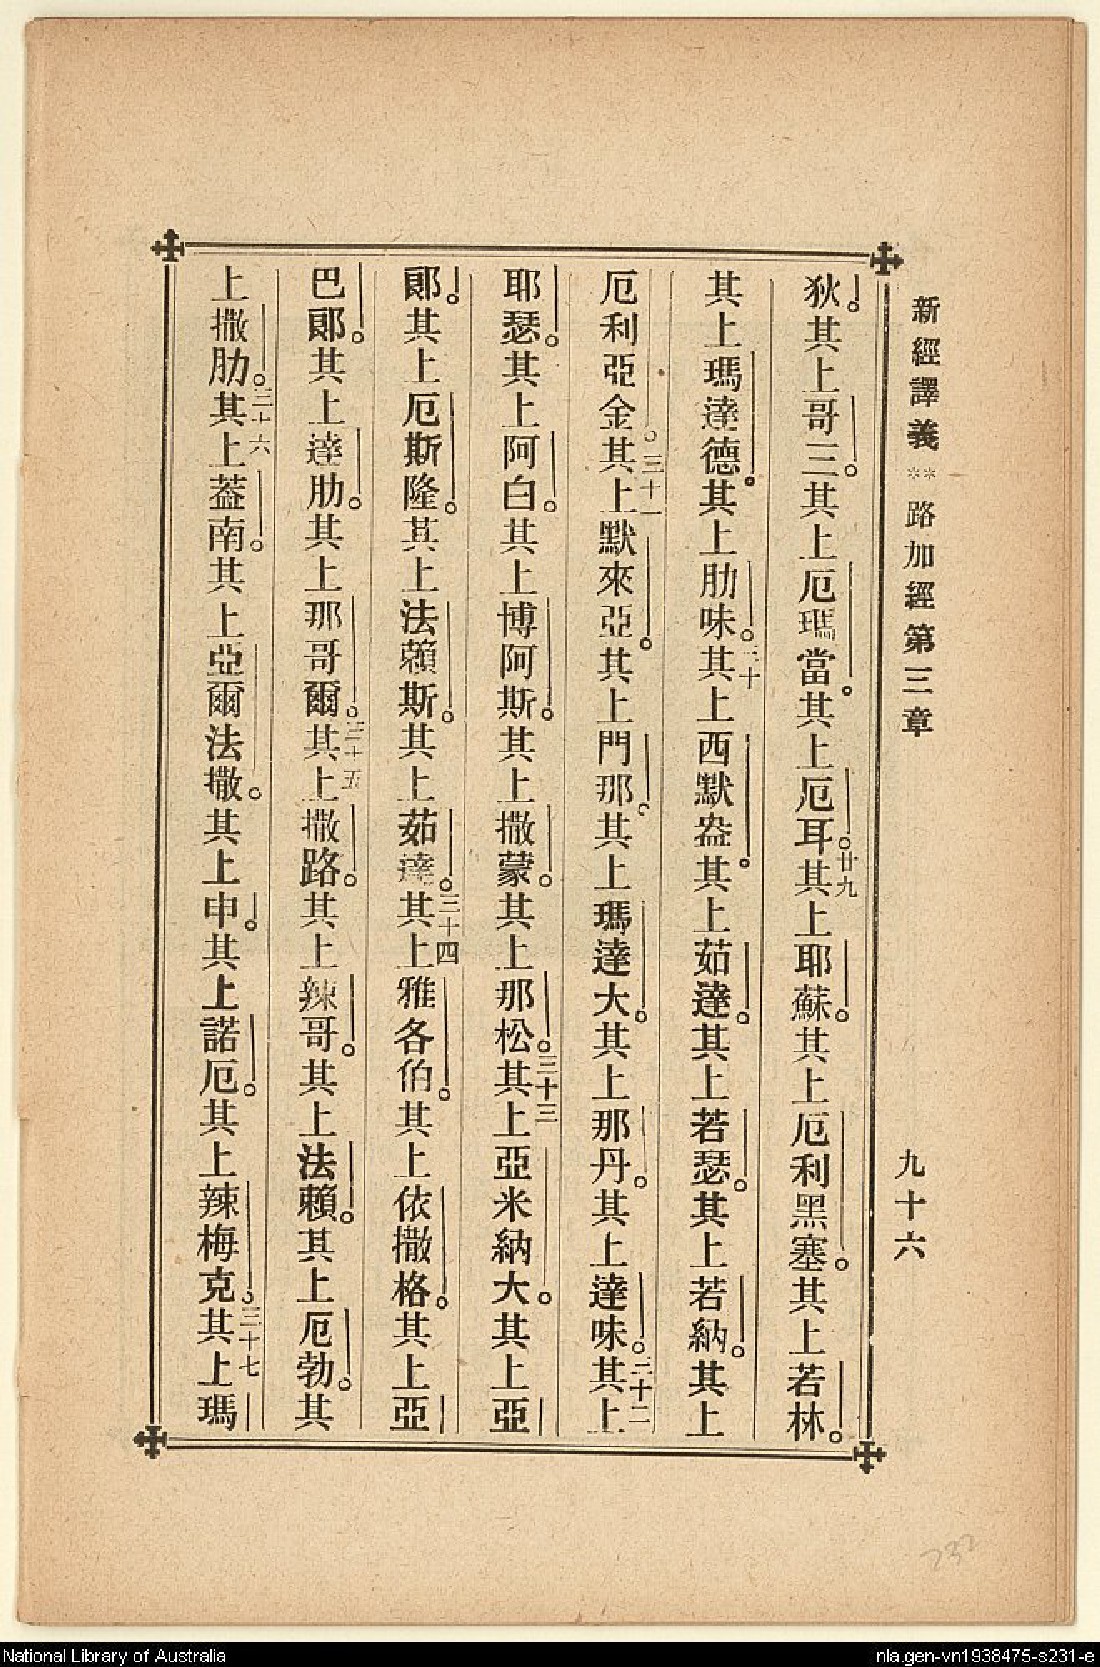 新經譯義 ** 路加經第三章 九十六
狄。其上哥三。其上厄瑪當。其上厄耳。廿九其上耶蘇。其上厄利黑塞。其上若林。
其上瑪達德。其上肋味。三十其上西默盎。其上茹達。其上若瑟。其上若納。其上
厄利亞金。三十一其上默來亞。其上門那。其上瑪達大。其上那丹。其上達味。三十二其上
耶瑟。其上阿白。其上博阿斯。其上撒蒙。其上那松。三十三其上亞米納大。其上亞
郎。其上厄斯隆。其上法賴斯。其上茹達。三十四其上雅各伯。其上依撒格。其上亞
巴郎。其上達肋。其上那哥爾。三十五其上撒路。其上辣哥。其上法賴。其上厄勃。其
上撒肋。三十六其上葢南。其上亞爾法撒。其上申。其上諾厄。其上辣梅克。三十七其上瑪
232
National Library of Australia
nla.gen-vn1938475-s231-e